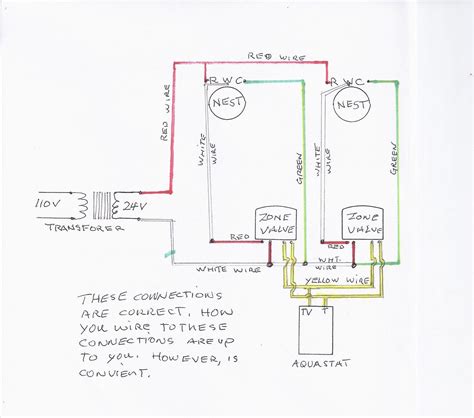 RED WIRE
R W C
R W C
NEST
NEST
RED WIRE
WHITE WIRE
GREEN
WHITE WIRE
GREEN
110V
24V
TRANSFORER
ZONE VALVE
ZONE VALVE
RED
RED
WHITE WIRE
WHT. WIRE
YELLOW WIRE
TV T
AQUASTAT
THESE CONNECTIONS
ARE CORRECT. HOW
YOU WIRE TO THESE
CONNECTIONS ARE UP
TO YOU. HOWEVER, IS
CONVIENT.